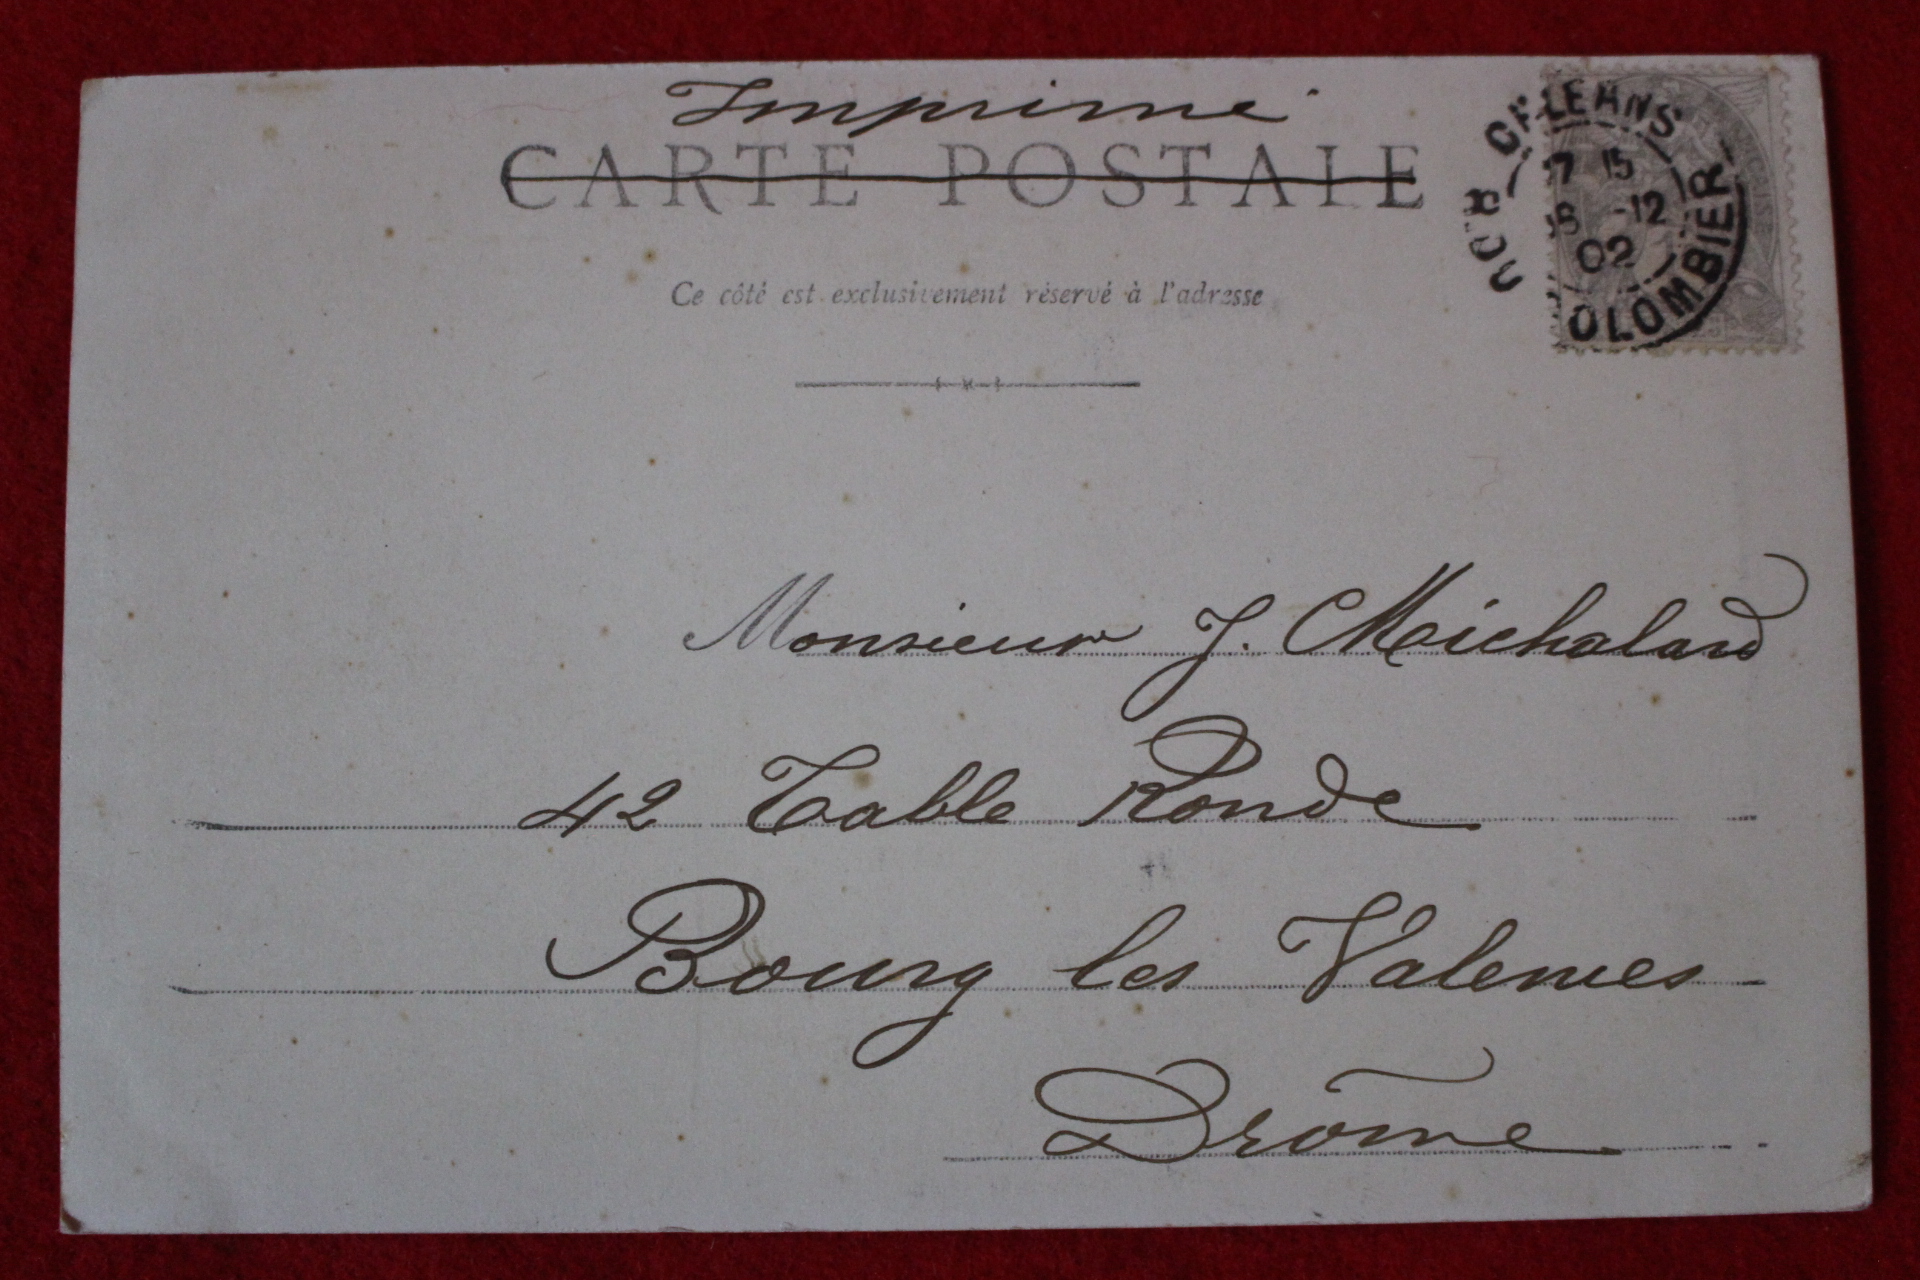 Imprimé
CARTE POSTALE
Ce côté est exclusivement réservé à l'adresse
ORLEANS
17 15
-12
02
R DU COLOMBIER
Monsieur J. Michalard
42 Table Ronde
Bourg les Valences
Drôme